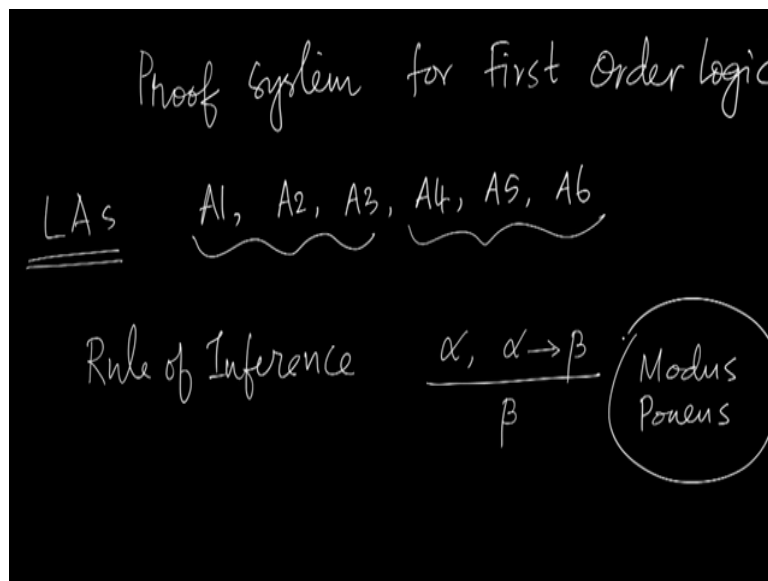 Proof system for First Order Logic
LAs A1, A2, A3, A4, A5, A6
Rule of Inference α, α→β
β
Modus
Ponens